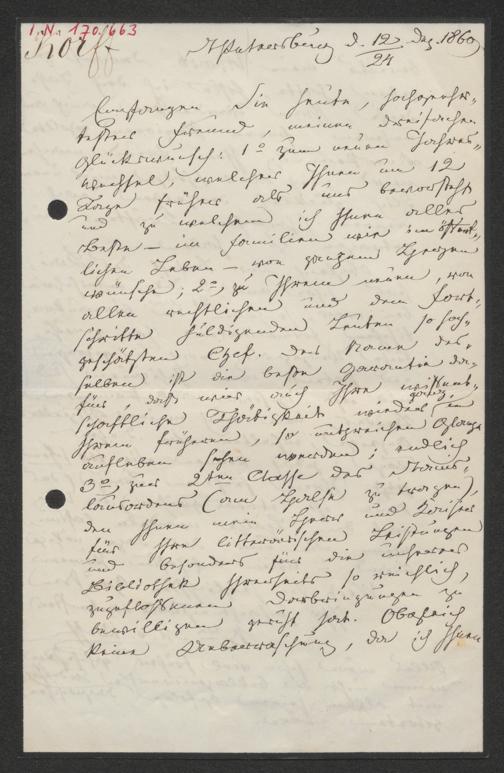 I.N. 170.663
Korff
St Petersburg d. 12/24 Dez. 1860
Empfangen Sie heute, hochgeehr-
tester Freund, meinen dreifachen
Glückwunsch: 1º zum neuen Jahres-
wechsel, welcher Ihnen um 12
Tage früher als uns bevorsteht
und zu welchem ich Ihnen alles
Beste – im Familien wie im öffent-
lichen Leben – von ganzem Herzen
wünsche; 2º, zu Ihrem neuen, von
allen rechtlichen und dem Fort-
schritte huldigenden Leuten so hoch-
geschätzten Chef. Der Name des-
selben ist die beste Garantie da-
für, daß wir auch Ihre wissent-
schaftliche Thätigkeit wieder ganz in
Ihrem früheren, so ruhmreichen Glanze
aufleben sehen werden; endlich
3º, zur 2ten Classe des Stanis-
lausordens (am Halse zu tragen),
den Ihnen mein Herr und Kaiser
für Ihre litterärischen Leistungen
und besonders für die unserer
Bibliothek Ihrerseits so reichlich,
zugeflossenen Darbringungen zu
bewilligen geruht hat. Obgleich
keine Ueberraschung, da ich Ihnen